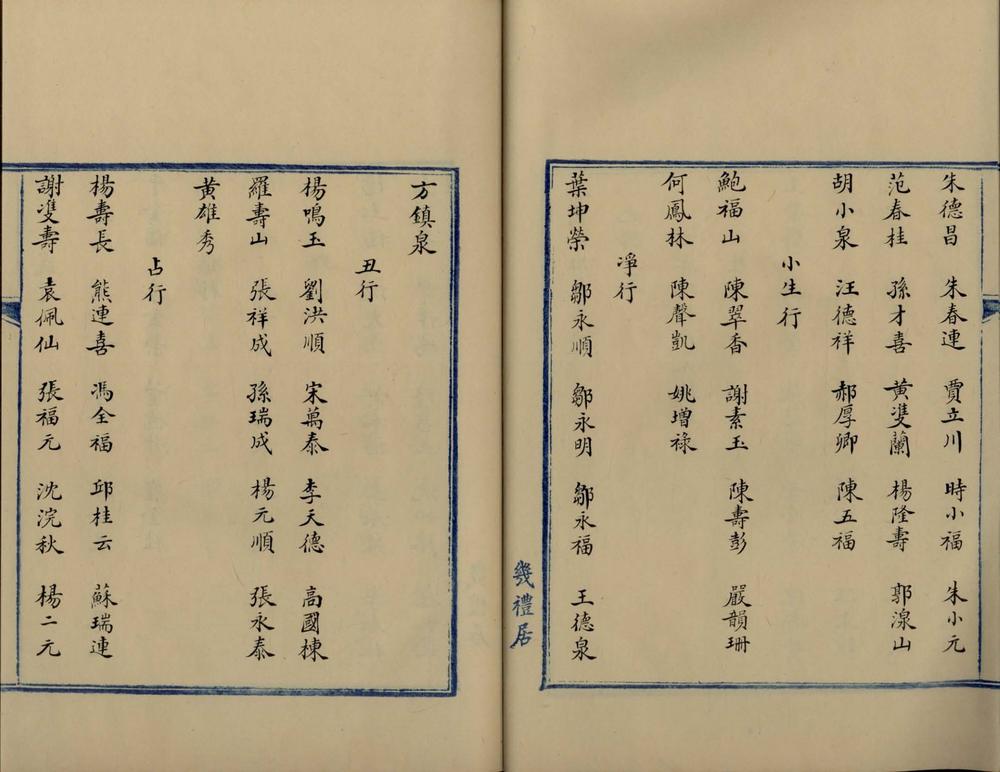 朱德昌 朱春連 賈立川 時小福 朱小元
范春桂 孫才喜 黄雙蘭 楊隆壽 郭湶山
胡小泉 汪德祥 郝厚卿 陳五福
小生行
鮑福山 陳翠香 謝素玉 陳壽彭 嚴韻珊
何鳳林 陳聲凱 姚增祿
淨行
葉坤榮 鄒永順 鄒永明 鄒永福 王德泉
幾禮居
方鎮泉
丑行
楊鳴玉 劉洪順 宋萬泰 李天德 高國棟
羅壽山 張祥成 孫瑞成 楊元順 張永泰
黄雄秀
占行
楊壽長 熊連喜 馮全福 邱桂云 蘇瑞連
謝雙壽 袁佩仙 張福元 沈浣秋 楊二元